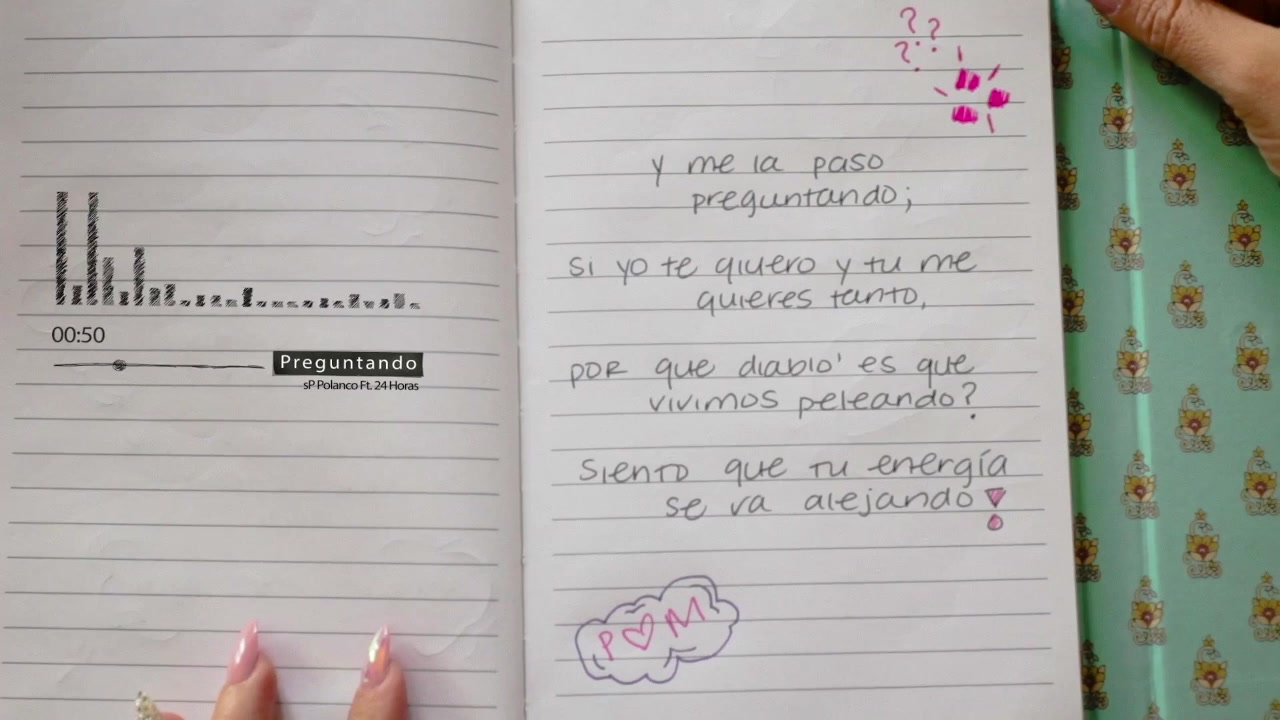 00:50
Preguntando
sP Polanco Ft. 24 Horas
? ?
?
y me la paso
preguntando;
si yo te qiuero y tu me
quieres tanto,
POR que diablo' es que
vivimos peleando?
siento que tu energía
se va alejando!
P♡M